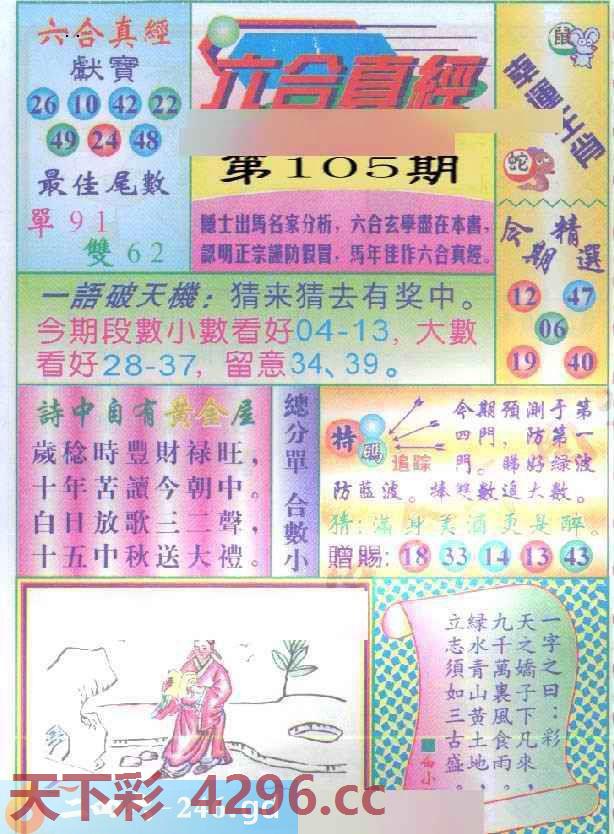 六合真經
獻寶
26 10 42 22
49 24 48
最佳尾數
單 9 1
雙 6 2
六合真經
第105期
隱士出馬名家分析，六合玄學盡在本書，
認明正宗謹防假冒，馬年佳作六合真經。
鼠
幸運生肖
蛇
今期精選
12 47
06
19 40
一語破天機：猜来猜去有奖中。
今期段數小數看好04-13, 大數
看好28-37, 留意34、39。
詩中自有黃金屋
歲稔時豐財祿旺，
十年苦讀今朝中。
白日放歌三二聲，
十五中秋送大禮。
總分單 合數小
特碼
追踪
今期預測于第
四門，防第一
門。睇好綠波
防藍波。捧雙數追大數。
猜：滿身美酒更是醉。
贈賜: 18 33 14 13 43
一字之曰：彩
天之嬌子下凡來，
九千萬裏風食雨，
綠水青山黃土地，
立志須如三古盛。
天下彩 4296.cc